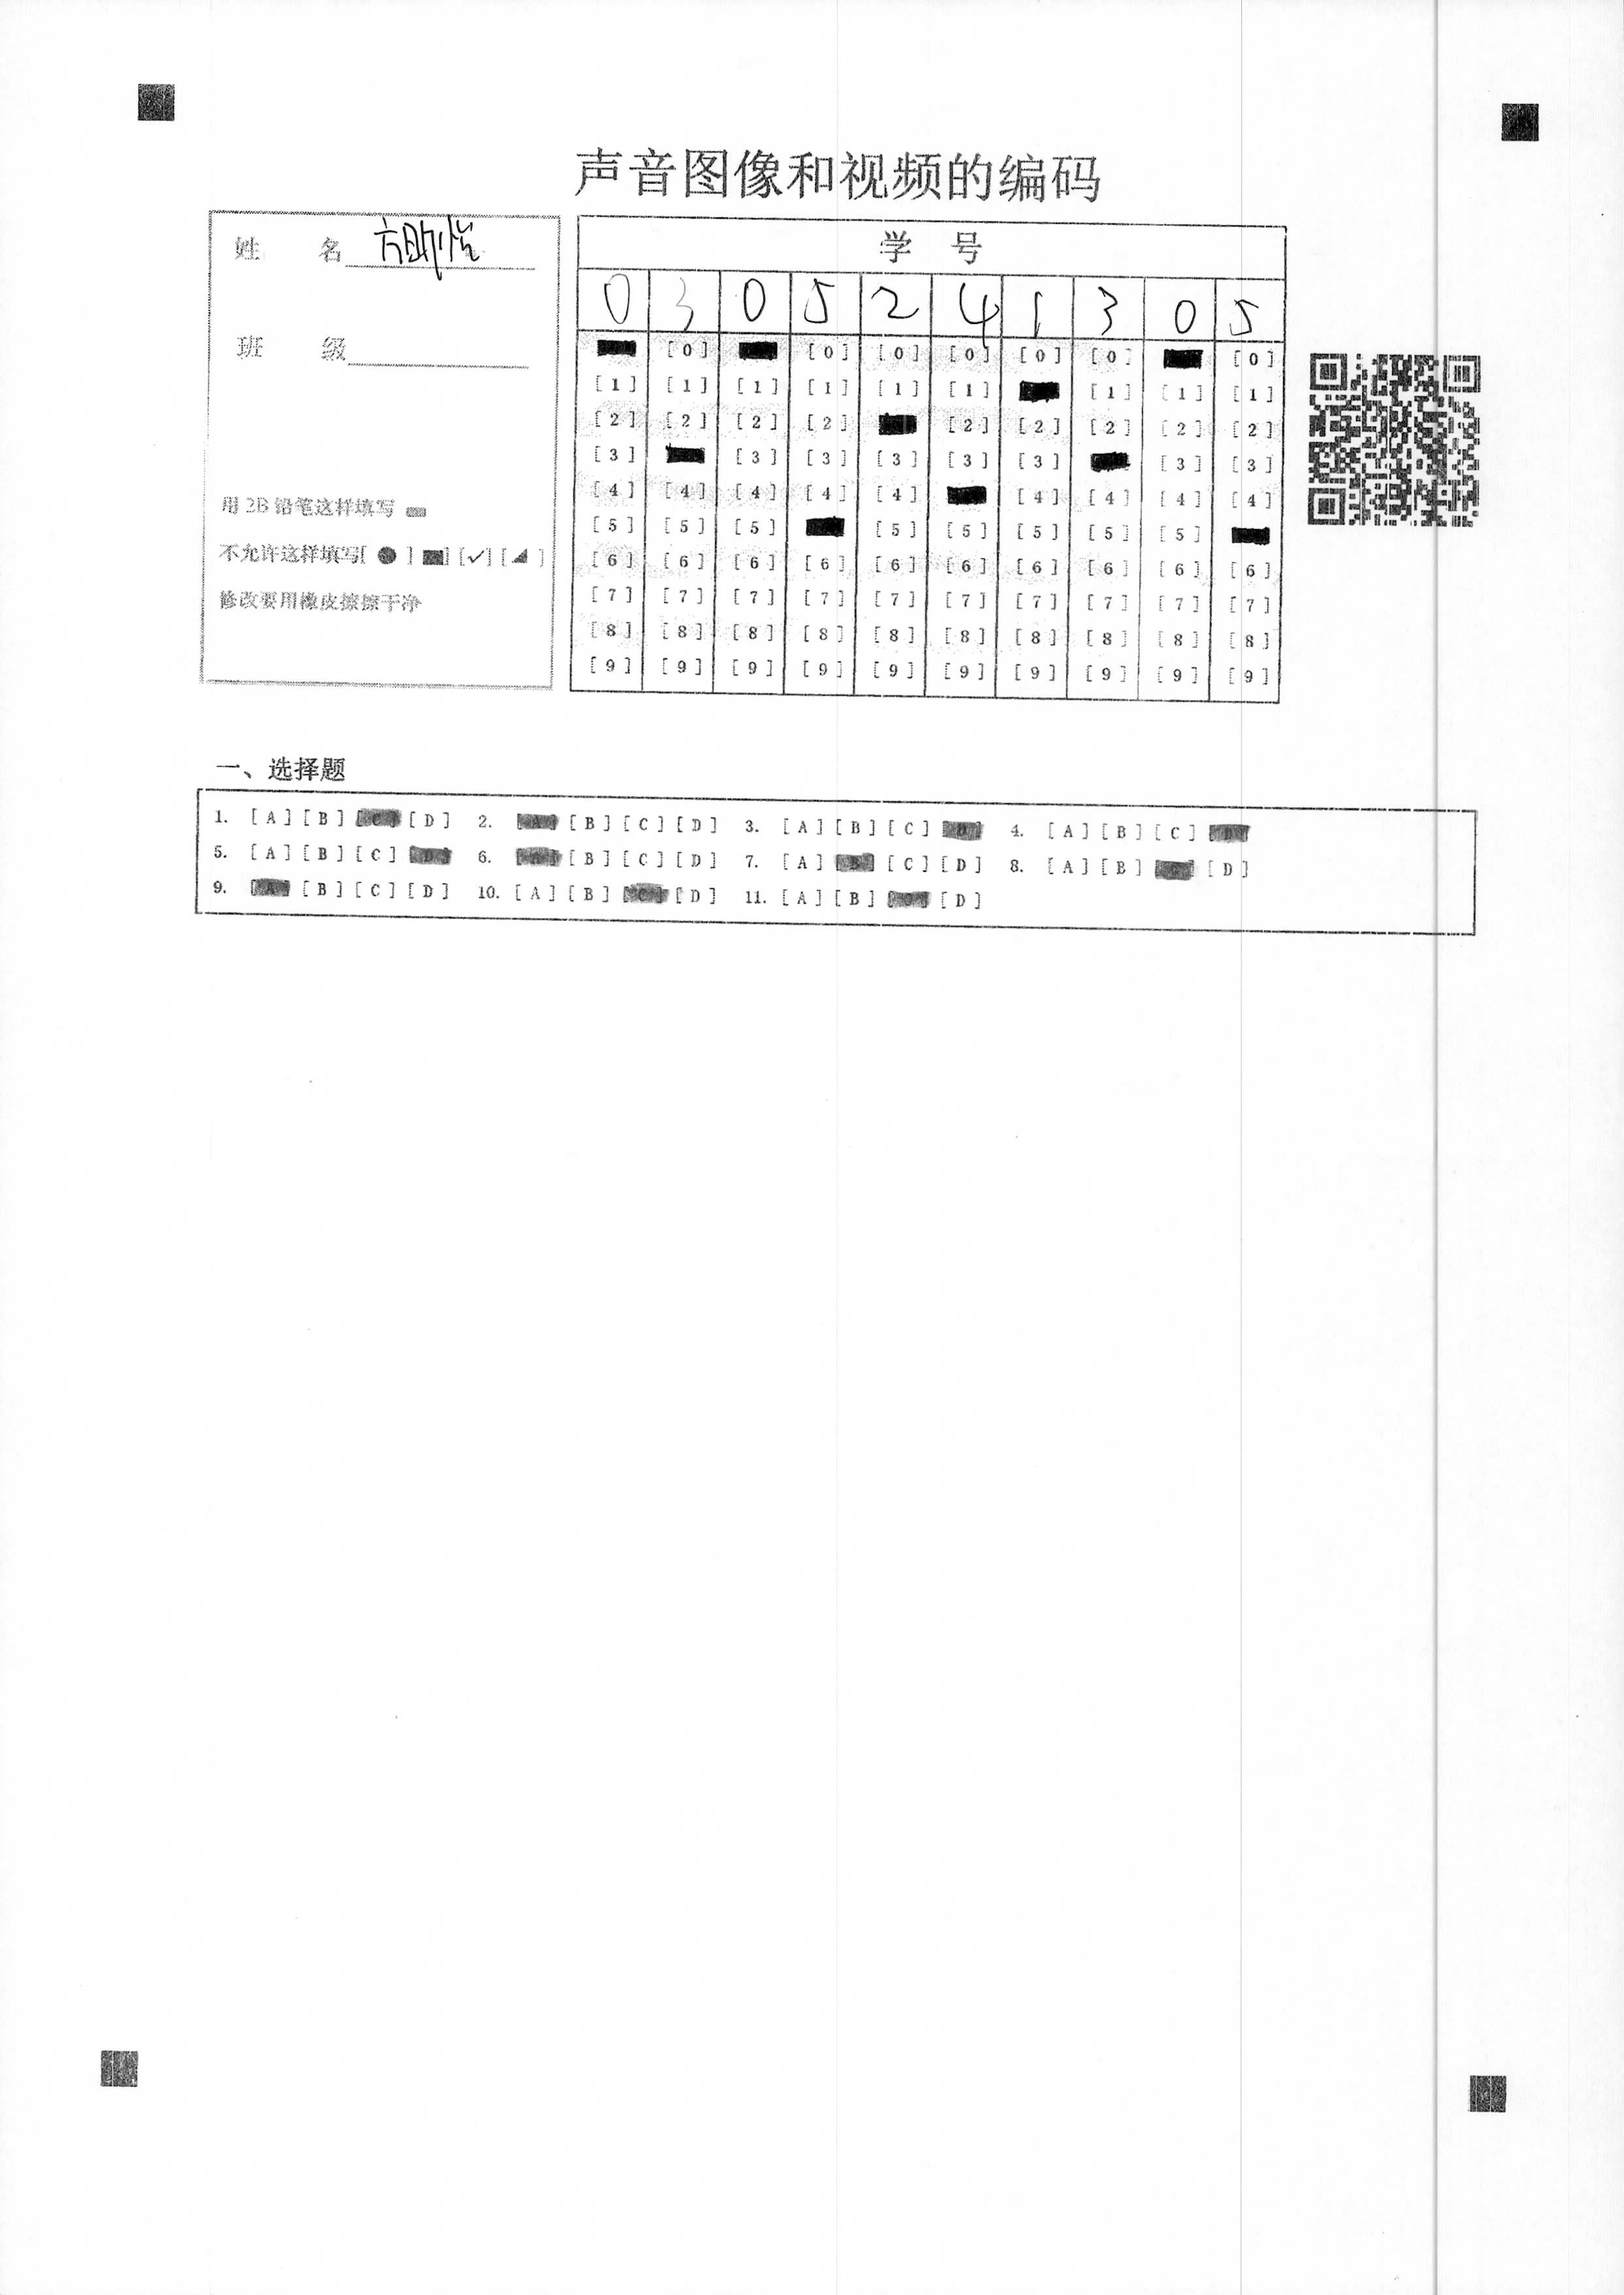 声音图像和视频的编码
姓 名
班 级
用2B铅笔这样填写
不允许这样填写[ ● ] [■] [✓] [◢ ]
修改要用橡皮擦擦干净
学 号
0 3 0 5 2 4 1 3 0 5
[0] [0] [0] [0] [0] [0] [0]
[1] [1] [1] [1] [1] [1] [1] [1] [1]
[2] [2] [2] [2] [2] [2] [2] [2] [2]
[3] [3] [3] [3] [3] [3] [3] [3]
[4] [4] [4] [4] [4] [4] [4] [4] [4]
[5] [5] [5] [5] [5] [5] [5] [5]
[6] [6] [6] [6] [6] [6] [6] [6] [6] [6]
[7] [7] [7] [7] [7] [7] [7] [7] [7] [7]
[8] [8] [8] [8] [8] [8] [8] [8] [8] [8]
[9] [9] [9] [9] [9] [9] [9] [9] [9] [9]
一、选择题
1. [A] [B] [C] [D] 2. [A] [B] [C] [D] 3. [A] [B] [C] [D] 4. [A] [B] [C] [D]
5. [A] [B] [C] [D] 6. [A] [B] [C] [D] 7. [A] [B] [C] [D] 8. [A] [B] [C] [D]
9. [A] [B] [C] [D] 10. [A] [B] [C] [D] 11. [A] [B] [C] [D]